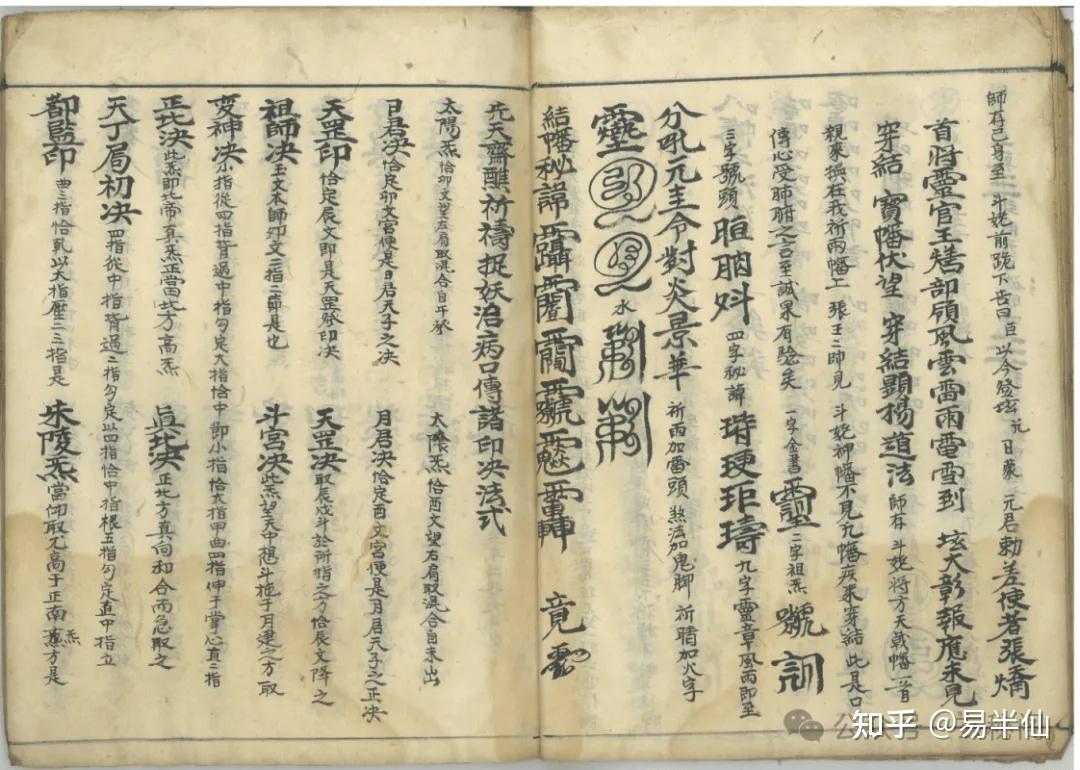 師存己身至 斗姥前跪下告曰臣 以今發坛 日蒙 元君勅差使者張燆
首將靈官王燔部領風雲雷雨電雪到 坛大彰報應未見
穿結 寶幡伏望 穿結顯揚道法 師存 斗姥將方天戟幡一首
親來換在我祈雨幡上 張王二帥見 斗姥神幡不見凢幡疾來穿結 此是口
傳心受肺腑之言至誠果有驗矣 一字金書 二字祖炁
三字號頭 四字秘諱 九字靈章風雨即至
分吼元主令對炎景華 祈雨加雷頭 煞法加鬼脚 祈晴加火字
水
結幡秘諱 竟
先天齋醮祈禱捉妖治病口傳諸印决法式
太陽炁 恰卯文望左肩取混合自斗發 太陰炁 恰酉文望右肩取混合自未出
日君决 恰定卯文宮便是日君天子之决 月君决 恰定酉文宮便是月君天子之正决
天罡印 恰定辰文即是天罡發印决 天罡决 取辰戌斗訟所指之方恰辰文降之
祖師决 玉文本師卯文二指二節是也 斗宮决 此炁望天中想斗拖于月建之方取
変神决 小指從四指背過中指勾定大指恰中節小指恰大指甲曲四指伸于掌心直二指
正北决 此炁即北帝真炁正當北方高炁 眞北决 正北方真向和合而急取之
天丁局初决 四指從中指背過二指勾定以四指恰中指根五指勾定直中指立
都監印 曲三指恰乾以大指壓二三指是 朱陵炁 當仰取尤高于正南 炁方是
知乎 @易半仙